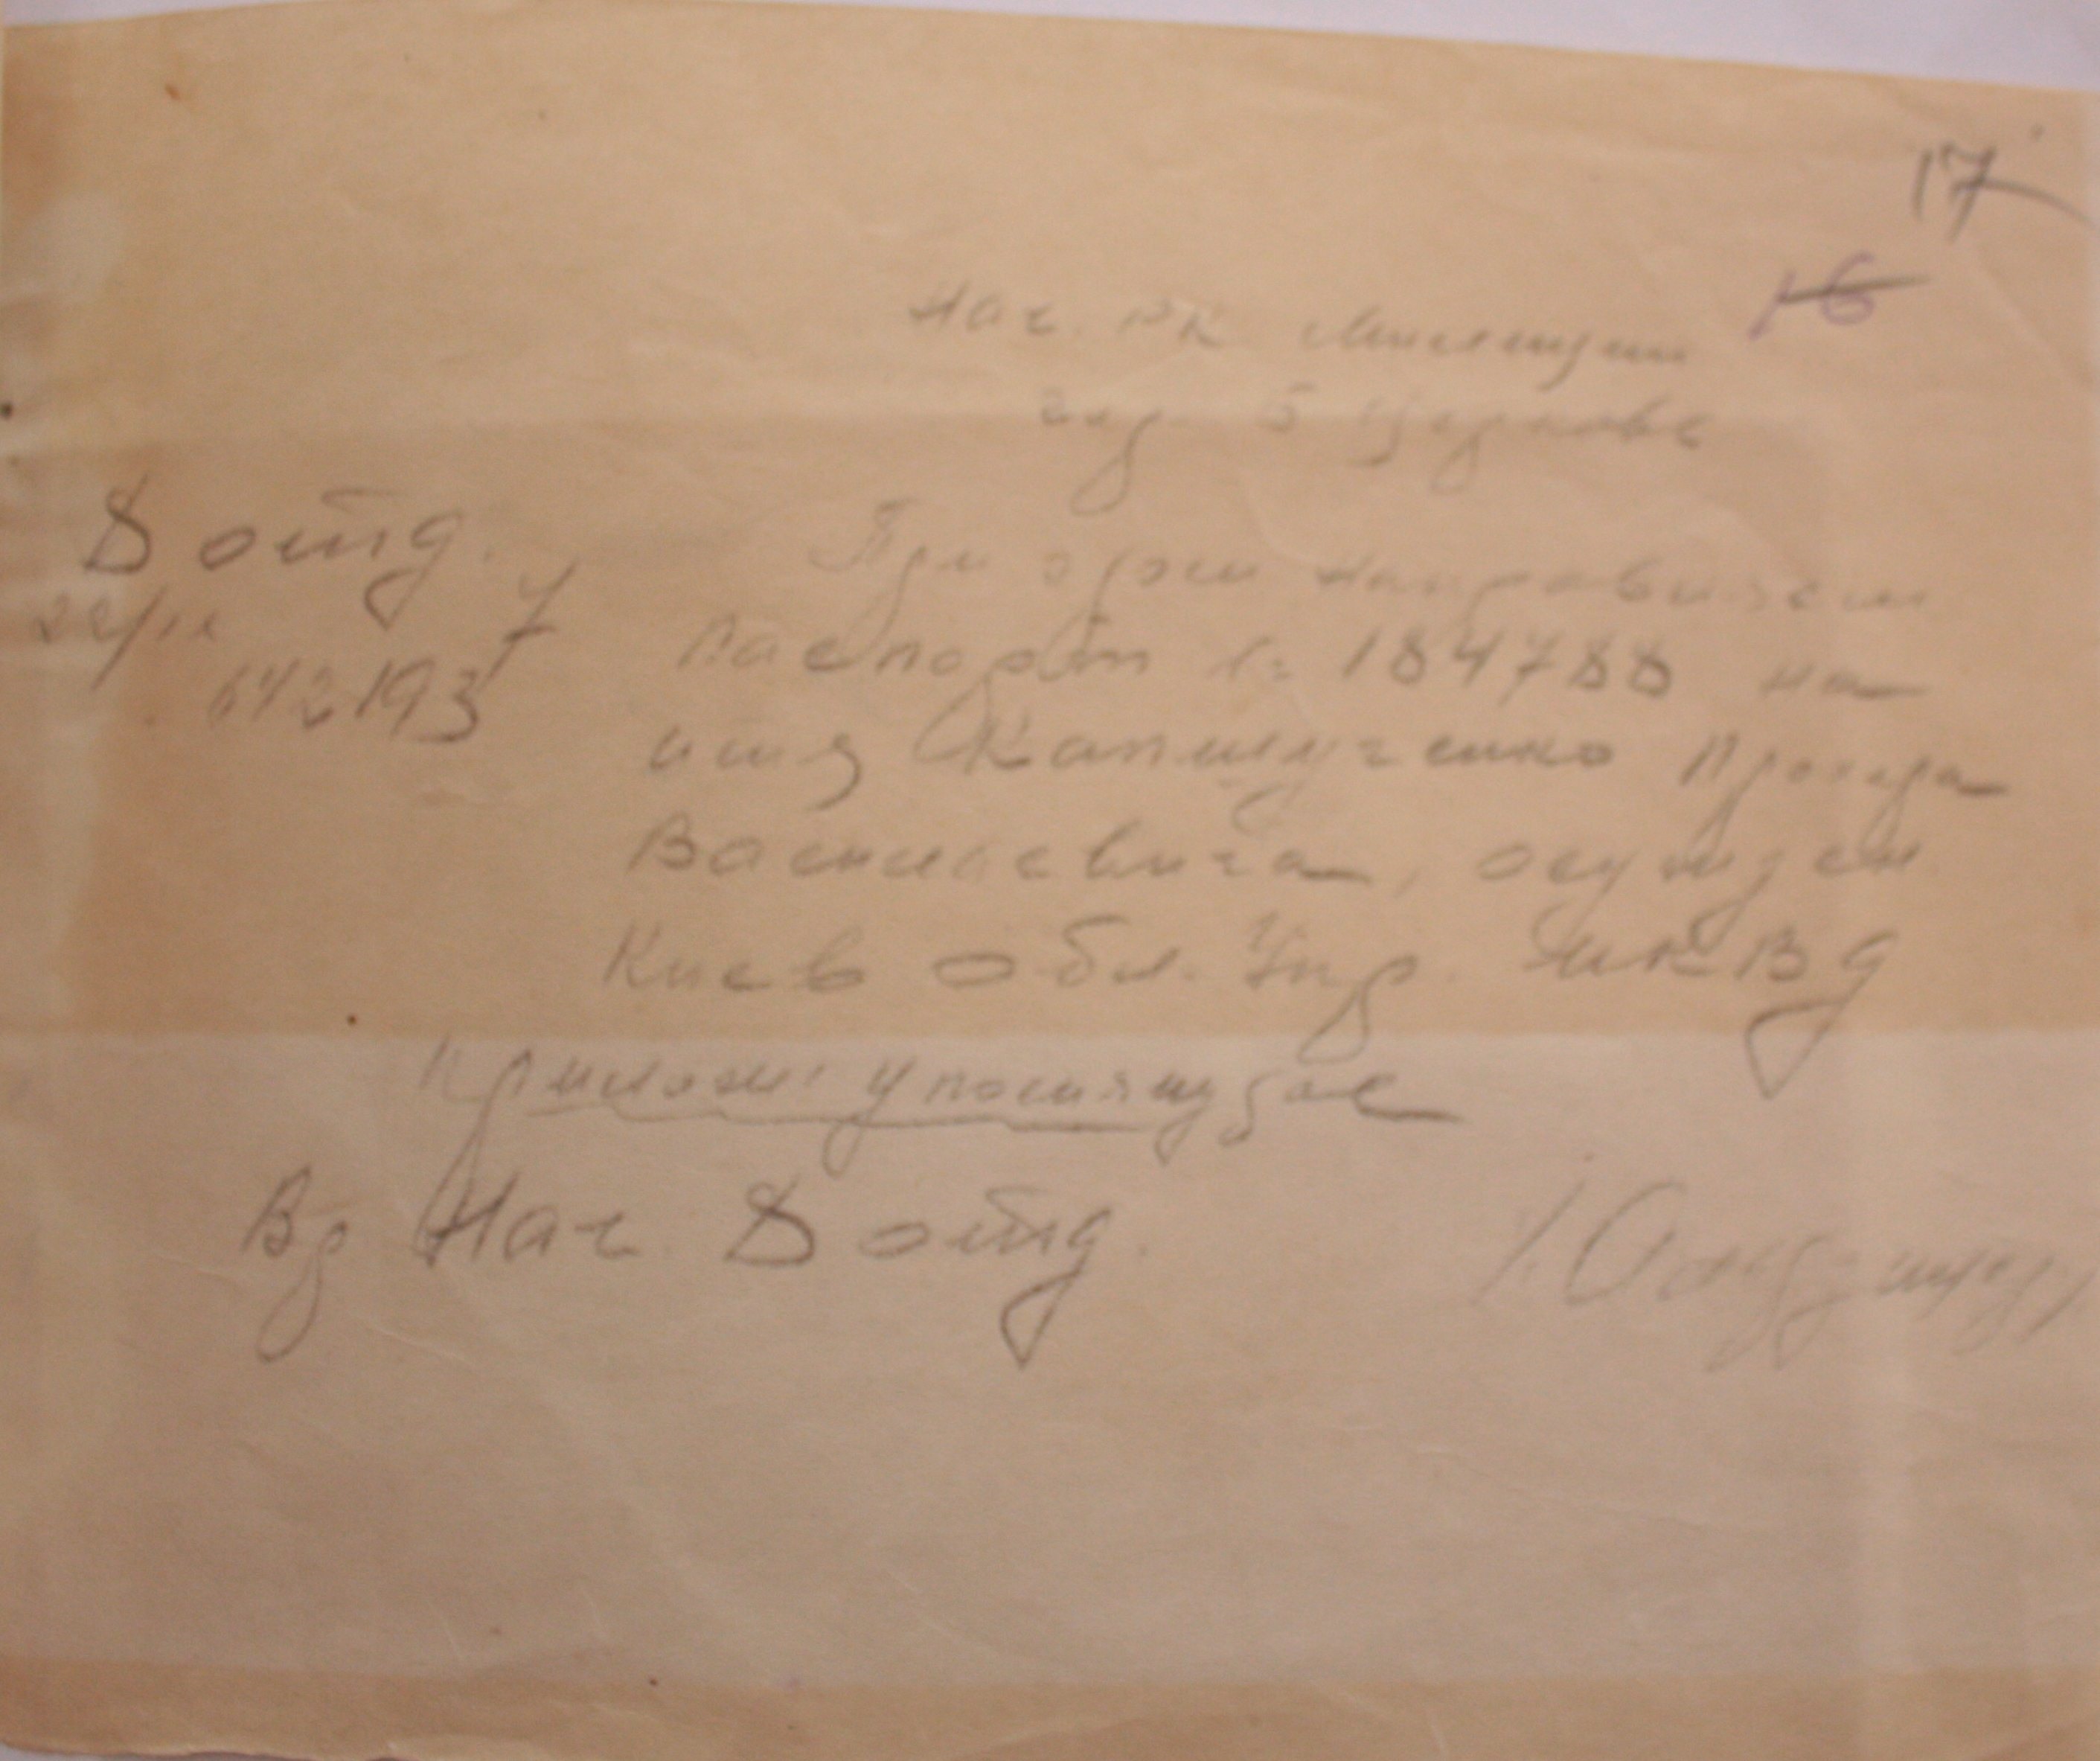 17
16
Нач. РК Милиции
гор. Б Церкове
8 отд.
22/IX 7
642193
При этом направляем
паспорт № 184788 на
имя Капшученко Прохора
Васильевича, осужден
Киев обл. Упр. НКВД
Прилож: упомянутое
Вр Нач. 8 отд.